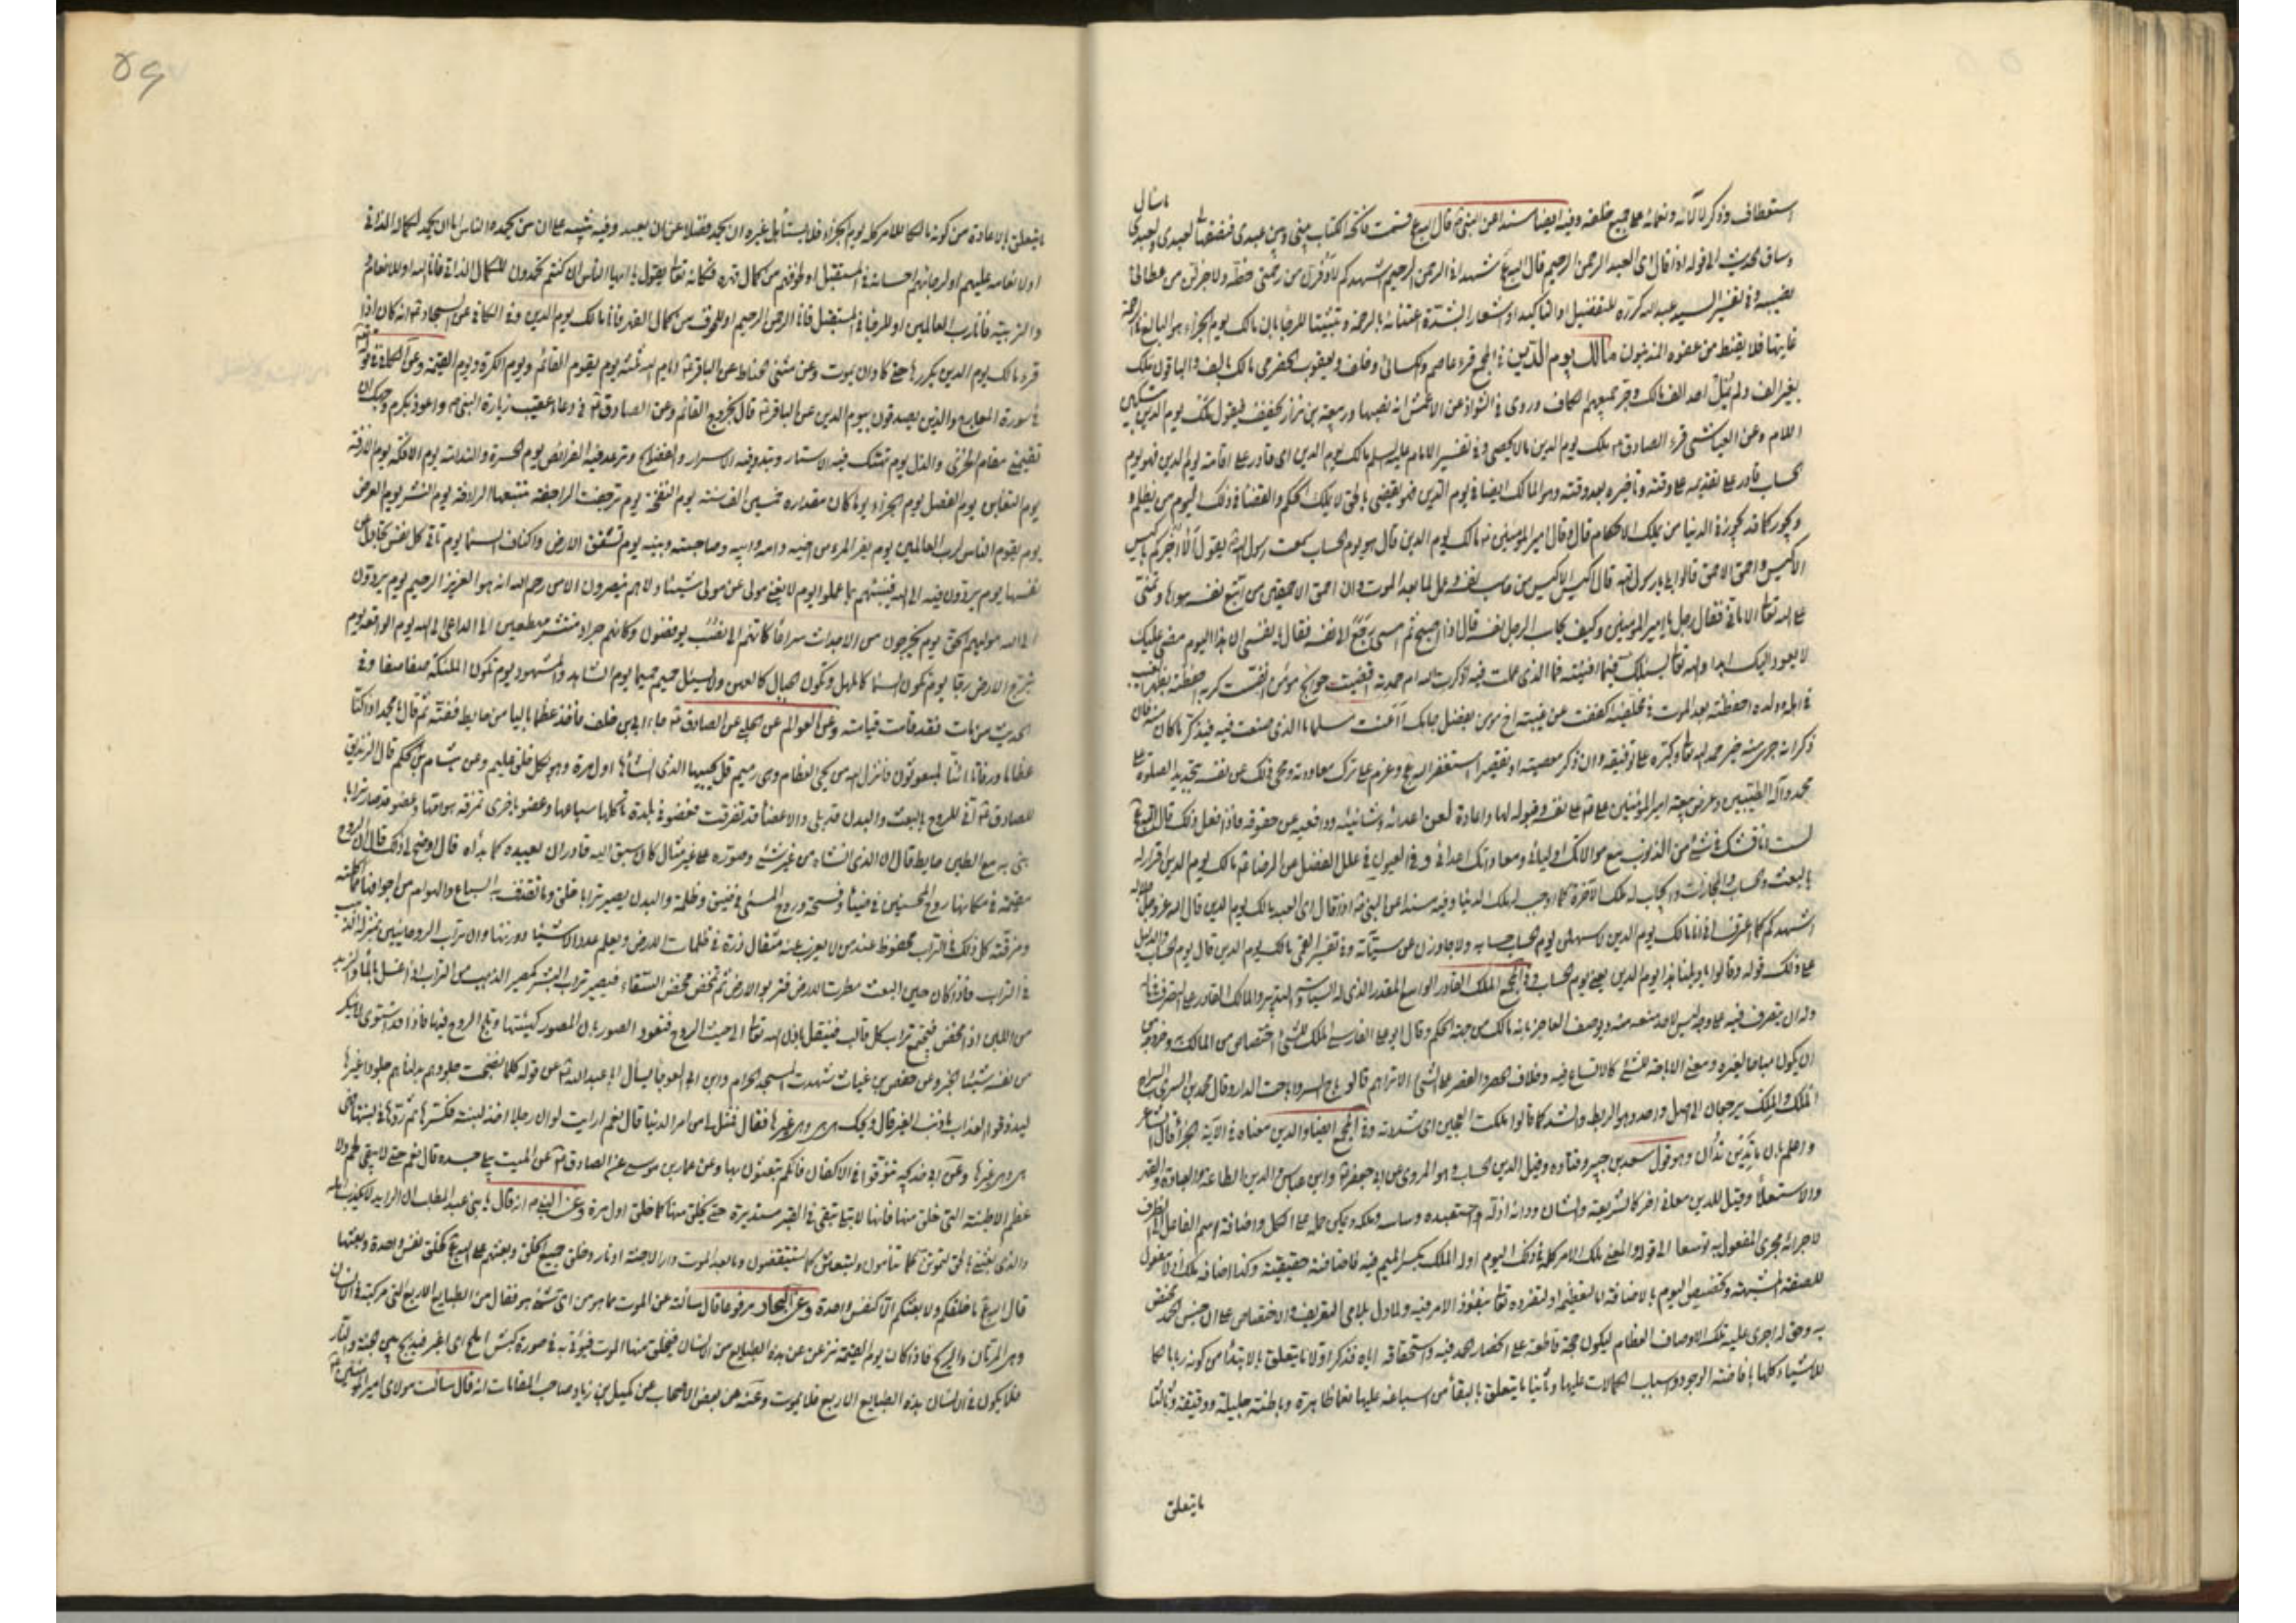 استعطاف وذكر لآلائه ونعمائه على جميع خلقه وفيه ايضا مسندا عن النبى ص قال الله ع قسمت فاتحة الكتاب بينى وبين عبدى فنصفها لى ونصفها لعبدى ولعبدى ما سال
وساق الحديث الى قوله اذا قال اى العبد الرحمن الرحيم قال الله ع شهد انى الرحمن الرحيم اشهدكم لاوفرن من رحمتى حظه ولاجزلن من عطائى
نصيبه وفى تفسير السيد عبد الله كرره للتفضيل او التاكيد او اشعار الشدة اعتنائه بالرحمة وتثبيتا للرجا بان مالك يوم الجزاء هو البالغ فى الرحمة
غايتها فلا يقنط من عفوه المذنبون مالك يوم الدين فى المجمع قرء عاصم والكسائى وخلف ويعقوب الحضرمى مالك بالف والباقون ملك
بغير الف ولم يمل احد الف مالك وجر جميعهم الكاف وروى فى الشواذ عن الاعمش انه نصبها وربيعة بن نزار يخفف فيقول ملك يوم الدين بتسكين
اللام وعن العياشى قرء الصادق ع ملك يوم الدين مالا يحصى وفى تفسير الامام عليه السلم مالك يوم الدين اى قادر على اقامة يوم الدين فهو يوم
الحساب قادر على تقديمه على وقته وتأخيره بعد وقته وهو المالك ايضا فى يوم الدين فهو يقضى بالحق لا يملك الحكم والقضا فى ذلك اليوم من يظلم
ويجور كما قد يجور فى الدنيا من يملك الاحكام قال وقال امير المؤمنين ع مالك يوم الدين قال هو يوم الحساب سمعت رسول الله ص يقول الا اخبركم باكيس
الاكيسين واحمق الاحمق قالوا بلى يا رسول الله قال اكيس الاكيس من حاسب نفسه وعمل لما بعد الموت وان احمق الاحمقين من اتبع نفسه هواها وتمنى
على الله تعالى الامانى فقال رجل يا امير المؤمنين وكيف يحاسب الرجل نفسه قال اذا اصبح ثم امسى رجع الى نفسه فقال يا نفسى ان هذا اليوم مضى عليك
لا يعود اليك ابدا والله تعالى يسئلك فيما افنيته فما الذى عملت فيه اذكرت الله ام حمدته اقضيت حوائج مؤمن انفست كربه احفظته بظهر الغيب
فى اهله وولده احفظته بعد الموت فى مخلفيه اكففت عن غيبة اخ مؤمن بفضل جاهك أاعنت مسلما ما الذى صنعت فيه فيذكر ما كان منه فان
ذكر انه جرى منه خير حمد الله تعالى وكبره على توفيقه وان ذكر معصية او تقصيرا استغفر الله ع وعزم على ترك معاودته ومحى ذلك عن نفسه بتجديد الصلوة على
محمد وآله الطيبين وعرض بيعة امير المؤمنين على نفسه وقبوله لها واعادة لعن اعدائه وشانئيه ودافعيه عن حقوقه فاذا فعل ذلك قال الله ع
لست اناقشك فى شئ من الذنوب مع موالاتك اوليائى ومعاداتك اعدائى وفى العيون فى علل الفضل عن الرضا ع مالك يوم الدين اقرار له
بالبعث والحساب والمجازات وايجاب له ملك الآخرة كما اوجب له ملك الدنيا وفيه مسندا عن النبى ص اذا قال اى العبد مالك يوم الدين قال الله عز وجل جلاله
اشهدكم كما اعترف انى انا مالك يوم الدين لاسهلن يوم الحساب حسابه ولاجاوزن عن سيئاته وفى تفسير القمى مالك يوم الدين قال يوم الحساب والدليل
على ذلك قوله وقالوا يا ويلنا هذا يوم الدين يعنى يوم الحساب وفى المجمع الملك القادر الواسع المقدر الذى له السياسة والتدبير والمالك القادر على التصرف فى ماله
وله ان يتصرف فيه على وجه ليس لاحد منعه منه ويوصف العاجز بانه مالك من جهة الحكم وقال ابو على الفارسى الملك للشئ اختصاص من المالك به وخروجه من
ان يكون مباحا لغيره ومعنى الاباحة للشئ كالاتساع فيه وخلاف الحصر والقصر على الشئ الا تراهم قالوا باح السر وباحت الدار وقال محمد بن السرى السراج
الملك والملك يرجعان الى اصل واحد وهو الربط والشد كما قالوا ملكت العجين اى شددته وفى المجمع ايضا والدين معناه فى الآية الجزاء قال الشاعر
واعلم بان ما تدين تدان وهو قول سعيد بن جبير وقتادة وقيل الدين الحساب وهو المروى عن ابى جعفر ع وابن عباس والدين الطاعة والعادة والقهر
والاستعلا وقيل للدين معانى اخر كالشريعة والشان ودانه اذله واستعبده وساسه وملكه ويمكن حمله على الكل واضافة اسم الفاعل الى الظرف
لاجرائه مجرى المفعول به توسعا الى قوله والمعنى ملك الامر كله فى ذلك اليوم او له الملك بكسر الميم فيه فاضافته حقيقية وكذا اضافة ملك اذ لا مفعول
للصفة المشبهة وتخصيص اليوم بالاضافة اما لتعظيمه او لتفرده تعالى بنفوذ الامر فيه ولما دل بلامى التعريف والاختصاص على ان جنس الحمد مختص
به وحق له اجرى عليه تلك الاوصاف العظام ليكون حجة قاطعة على انحصار الحمد فيه واستحقاقه اياه فذكر اولا ما يتعلق بالابتدا من كونه ربا مالكا
للاشياء كلها بافاضة الوجود واسباب الكمالات عليها وثانيا ما يتعلق بالبقا من اسباغه عليها نعما ظاهرة وباطنة جليلة ودقيقة وثالثا
ما يتعلق
٥٦
ما يتعلق بالاعادة من كونه مالكا للامر كله يوم الجزاء فلا يستأهل غيره ان يحمد فضلا عن ان يعبد وفيه تنبيه على ان من يحمده الناس اما ان يحمد لكماله الذاتى
او لانعامه عليهم او لرجائهم احسانه فى المستقبل او لخوفهم من كمال قهره فكانه تعالى يقول يا ايها الناس ان كنتم تحمدون للكمال الذاتى فانى انا الله او للانعام
والتربية فانا رب العالمين او للرجا فى المستقبل فانا الرحمن الرحيم او للخوف من كمال القهر فانا مالك يوم الدين وفى الكافى عن السجاد ع انه كان اذا
قرء مالك يوم الدين يكررها حتى كاد ان يموت وعن مثنى الحناط عن الباقر ع ايام الله ثلثة يوم يقوم القائم ويوم الكرة ويوم القيمة وعن الكافى فى قوله
فى سورة المعارج والذين يصدقون بيوم الدين عن الباقر ع قال بخروج القائم وعن الصادق ع فى دعاء عقيب زيارة النبى ص واعوذ بكرم وجهك ان
تقيمنى مقام الخزى والذل يوم تهتك فيه الاستار وتبدو فيه الاسرار والفضايح وترعد فيه الفرائص يوم الحسرة والندامة يوم الافكة يوم الآزفة
يوم التغابن يوم الفصل يوم الجزاء يوما كان مقداره خمسين الف سنة يوم النفخة يوم ترجف الراجفة تتبعها الرادفة يوم النشر يوم العرض
يوم يقوم الناس لرب العالمين يوم يفر المرء من اخيه وامه وابيه وصاحبته وبنيه يوم تشقق الارض واكناف السما يوم تاتى كل نفس تجادل عن
نفسها يوم يردون فيه الى الله فينبئهم بما عملوا يوم لا يغنى مولى عن مولى شيئا ولا هم ينصرون الا من رحم الله انه هو العزيز الرحيم يوم يردون
الى الله موليهم الحق يوم يخرجون من الاجداث سراعا كانهم الى نصب يوفضون وكانهم جراد منتشر مهطعين الى الداعى الى الله يوم الواقعة يوم
ترج الارض رجا يوم تكون السما كالمهل وتكون الجبال كالعهن ولا يسئل حميم حميما يوم الشاهد والمشهود يوم تكون الملئكة صفا صفا وفى
الحديث من مات فقد قامت قيامته وعن العوالم عن الحلبى عن الصادق ع جاء ابى بن خلف فاخذ عظما باليا من حايط ففته ثم قال يا محمد اءذا كنا
عظاما ورفاتا ائنا لمبعوثون فانزل الله من يحيى العظام وهى رميم قل يحييها الذى انشأها اول مرة وهو بكل خلق عليم وعن هشام بن الحكم قال الزنديق
للصادق ع انى للروح بالبعث والبدن قد بلى والاعضا قد تفرقت فعضو فى بلدة تاكلها سباعها وعضو باخرى تمزقه هوامها وعضو قد صار ترابا
بنى به مع الطين حايط قال ان الذى انشاه من غير شئ وصوره على غير مثال كان سبق اليه قادر ان يعيده كما بداه قال اوضح لى ذلك قال ان الروح
مقيمة فى مكانها روح المحسنين فى ضيا وفسحة وروح المسئ فى ضيق وظلمة والبدن يصير ترابا منه خلق وما تقذف به السباع والهوام من اجوافها مما اكلته
ومزقته كل ذلك فى التراب محفوظ عند من لا يعزب عنه مثقال ذرة فى ظلمات الارض ويعلم عدد الاشيا ووزنها وان تراب الروحانيين بمنزلة الذهب
فى التراب فاذا كان حين البعث مطرت الارض فتربو الارض ثم تمخض مخض السقاء فيصير تراب البشر كمصير الذهب من التراب اذا غسل بالماء والزبد
من اللبن اذا مخض فيجتمع تراب كل قالب فينتقل باذن الله تعالى الى حيث الروح فتعود الصور باذن المصور كهيئتها وتلج الروح فيها فاذا قد استوى لا ينكر
من نفسه شيئا الخبر وعن حفص بن غياث شهدت المسجد الحرام وابن ابى العوجا يسأل ابا عبد الله ع عن قوله كلما نضجت جلودهم بدلناهم جلودا غيرها
ليذوقوا العذاب ما ذنب الغير قال ويحك هى هى وهى غيرها فقال فمثل لى من امر الدنيا قال نعم ارايت لو ان رجلا اخذ لبنة فكسرها ثم ردها فى لبنتها فهى
هى وهى غيرها وعن ابى خديجة تنوقوا فى الاكفان فانكم تبعثون بها وعن عمار بن موسى عن الصادق ع عن الميت يبلى جسده قال نعم حتى لا يبقى لحم ولا
عظم الا طينته التى خلق منها فانها لا تبلى تبقى فى القبر مستديرة حتى يخلق منها كما خلق اول مرة وعن النبى ص انه قال يا بنى عبد المطلب ان الرايد لا يكذب اهله
والذى بعثنى بالحق لتموتن كما تنامون ولتبعثن كما تستيقظون وما بعد الموت دار الا جنة او نار وخلق جميع الخلق وبعثهم على الله ع كخلق نفس واحدة وبعثها
قال الله ع ما خلقكم ولا بعثكم الا كنفس واحدة وعن البحار مرفوعا قال سألته عن الموت مما هو من اى شئ هو فقال من الطبايع الاربع التى مركبة فى الانسان
وهى المرتان والريح فاذا كان يوم القيمة نزعن عن هذه الطبايع من الانسان فيخلق منها الموت فيؤتى به فى صورة كبش املح اى اغبر فيذبح بين الجنة والنار
فلا يكون فى الانسان هذه الطبايع الاربع فلا يموت وعنه عن بعض الاصحاب عن كميل بن زياد صاحب المقامات انه قال سألت مولاى امير المؤمنين ع